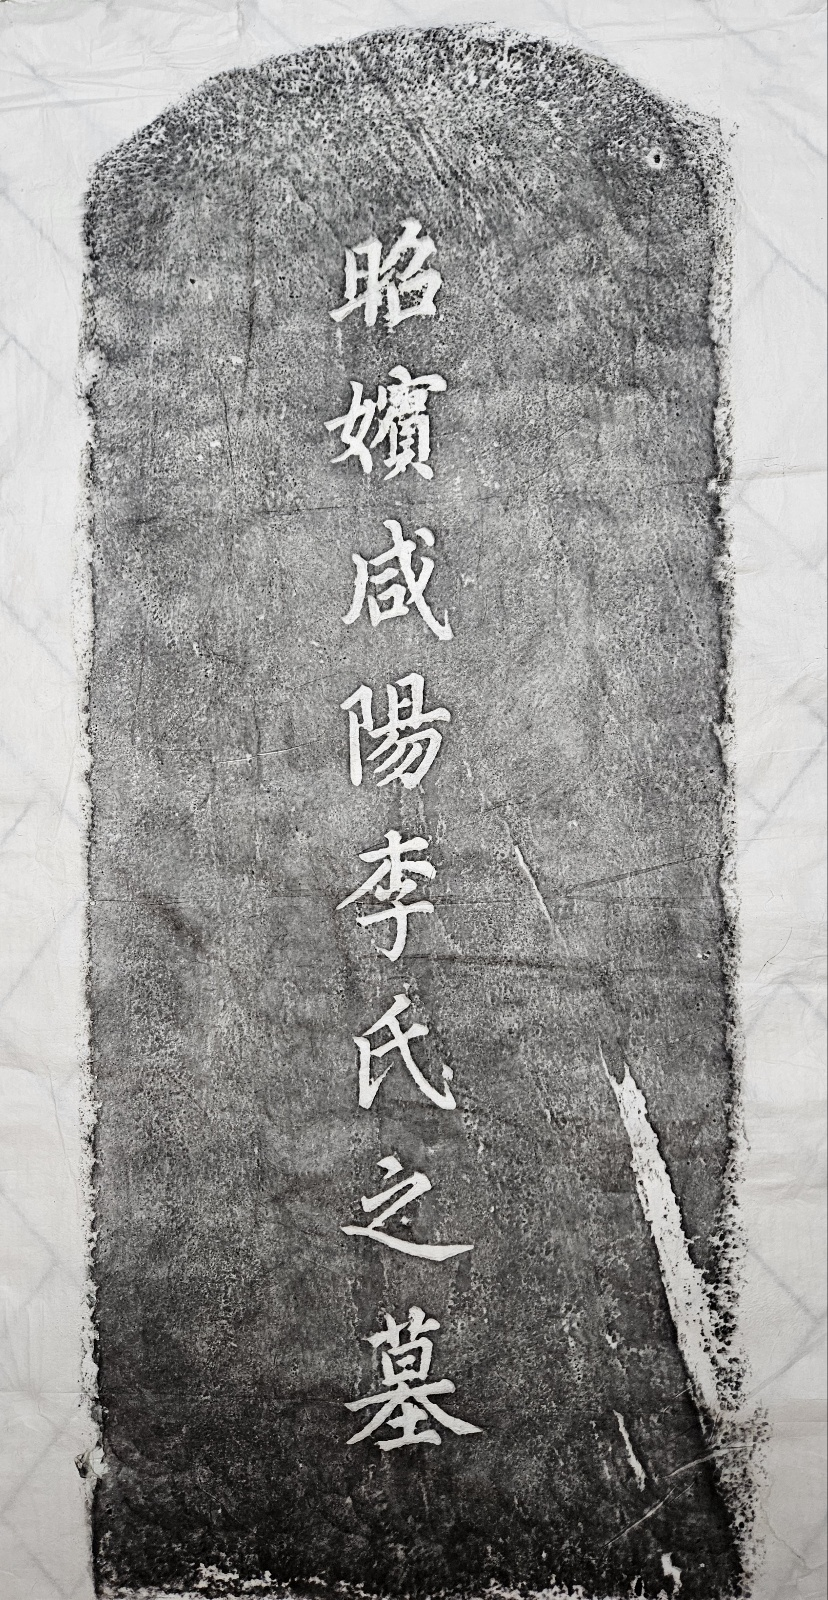 昭嬪咸陽李氏之墓